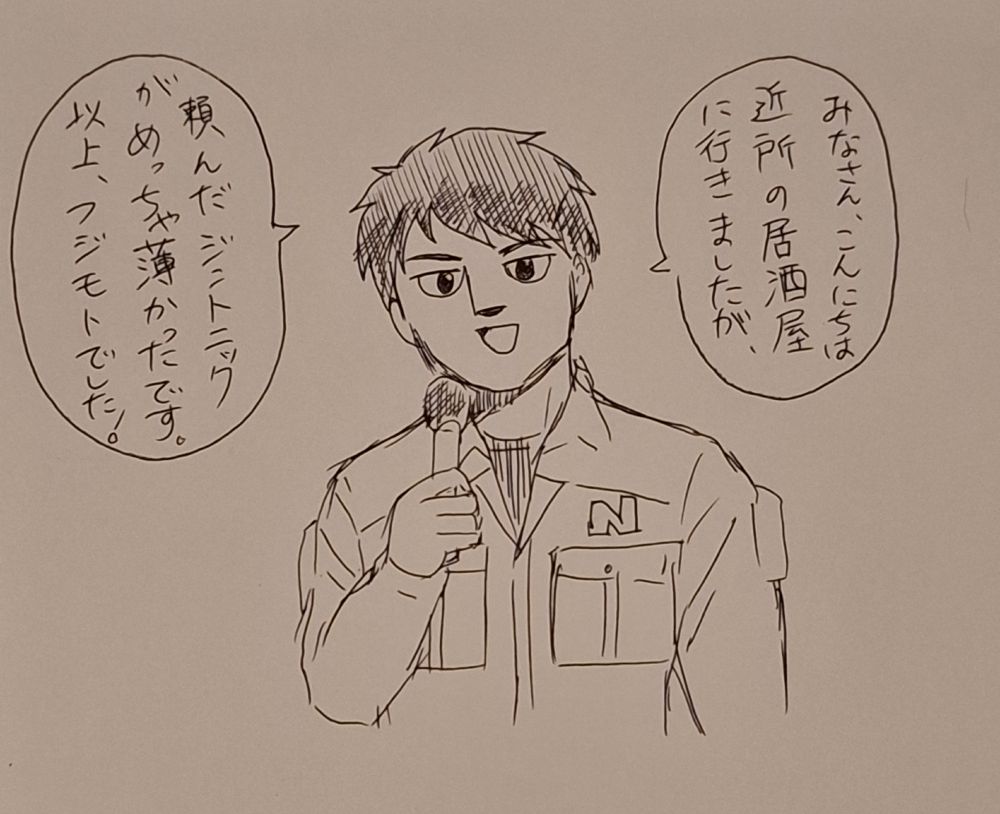 みなさん、こんにちは
近所の居酒屋
に行きましたが、
頼んだジントニック
がめっちゃ薄かったです。
以上、フジモトでした!
N